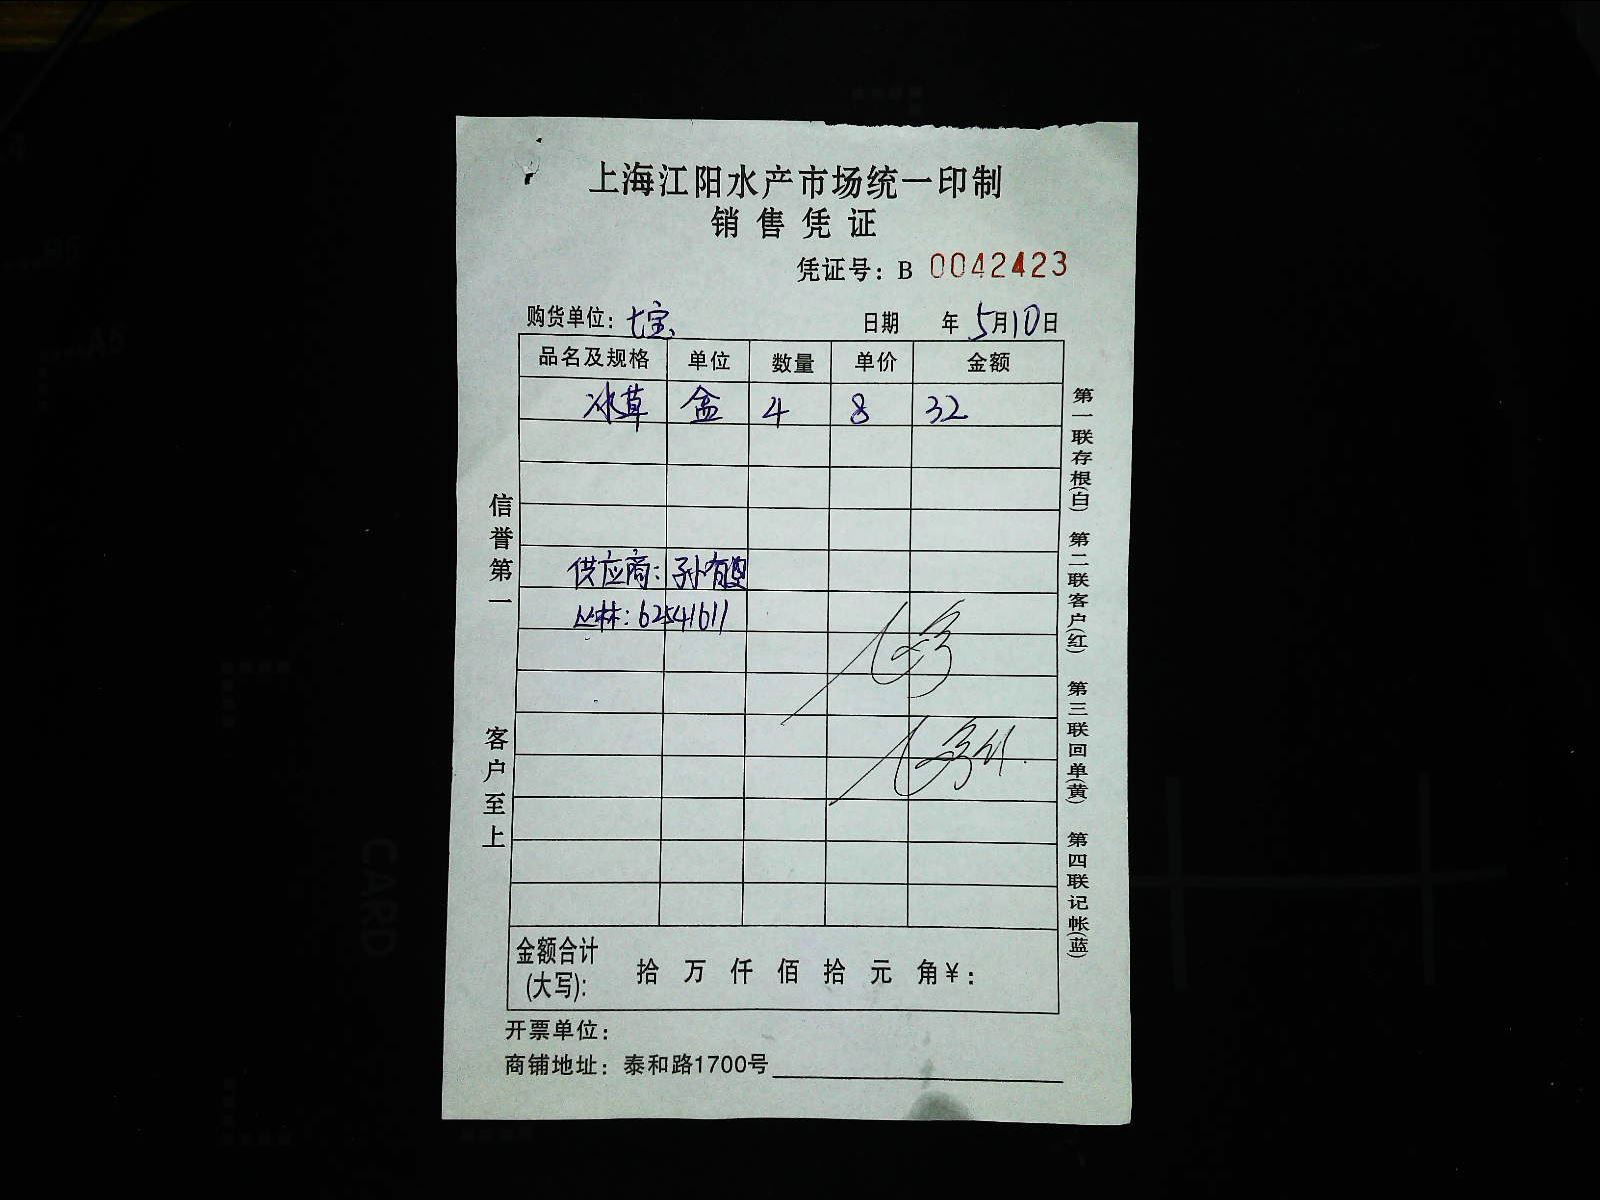 上海江阳水产市场统一印制
销售凭证
凭证号：B 0042423
购货单位：七宝 日期 年5月10日
品名及规格 单位 数量 单价 金额
冰草 盒 4 8 32
供应商：孙有
丛林：62541611
信誉第一
客户至上
第一联存根(白) 第二联客户(红) 第三联回单(黄) 第四联记帐(蓝)
金额合计(大写)： 拾 万 仟 佰 拾 元 角￥：
开票单位：
商铺地址：泰和路1700号
CARD
A5